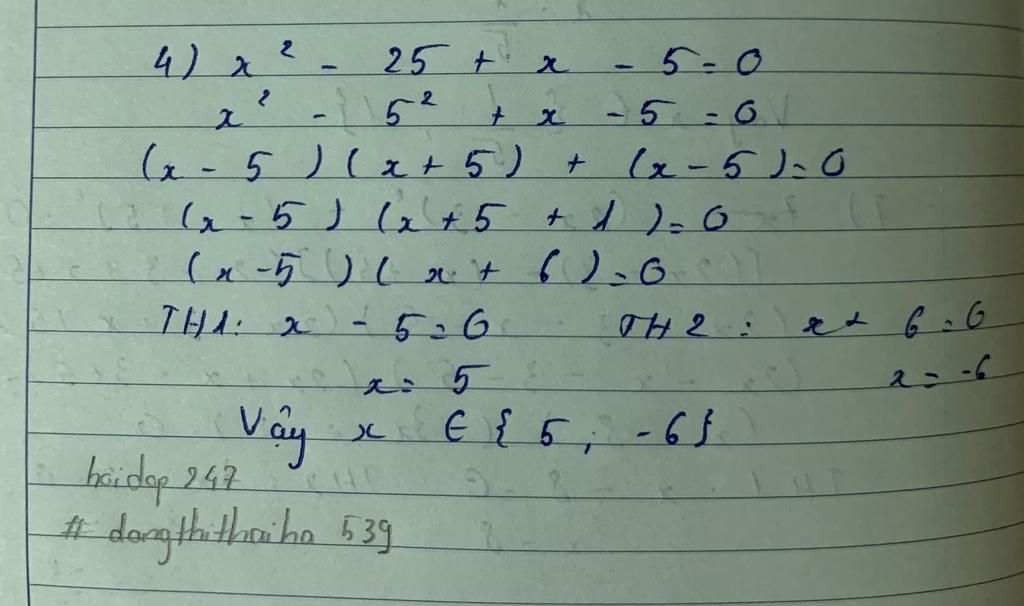 4) x² - 25 + x - 5 = 0
x² - 5² + x - 5 = 0
(x - 5)(x + 5) + (x - 5) = 0
(x - 5)(x + 5 + 1) = 0
(x - 5)(x + 6) = 0
TH1: x - 5 = 0 TH2: x + 6 = 0
x = 5 x = -6
Vậy x ∈ {5; -6}
hoidap 247
# dangthithaiha 539